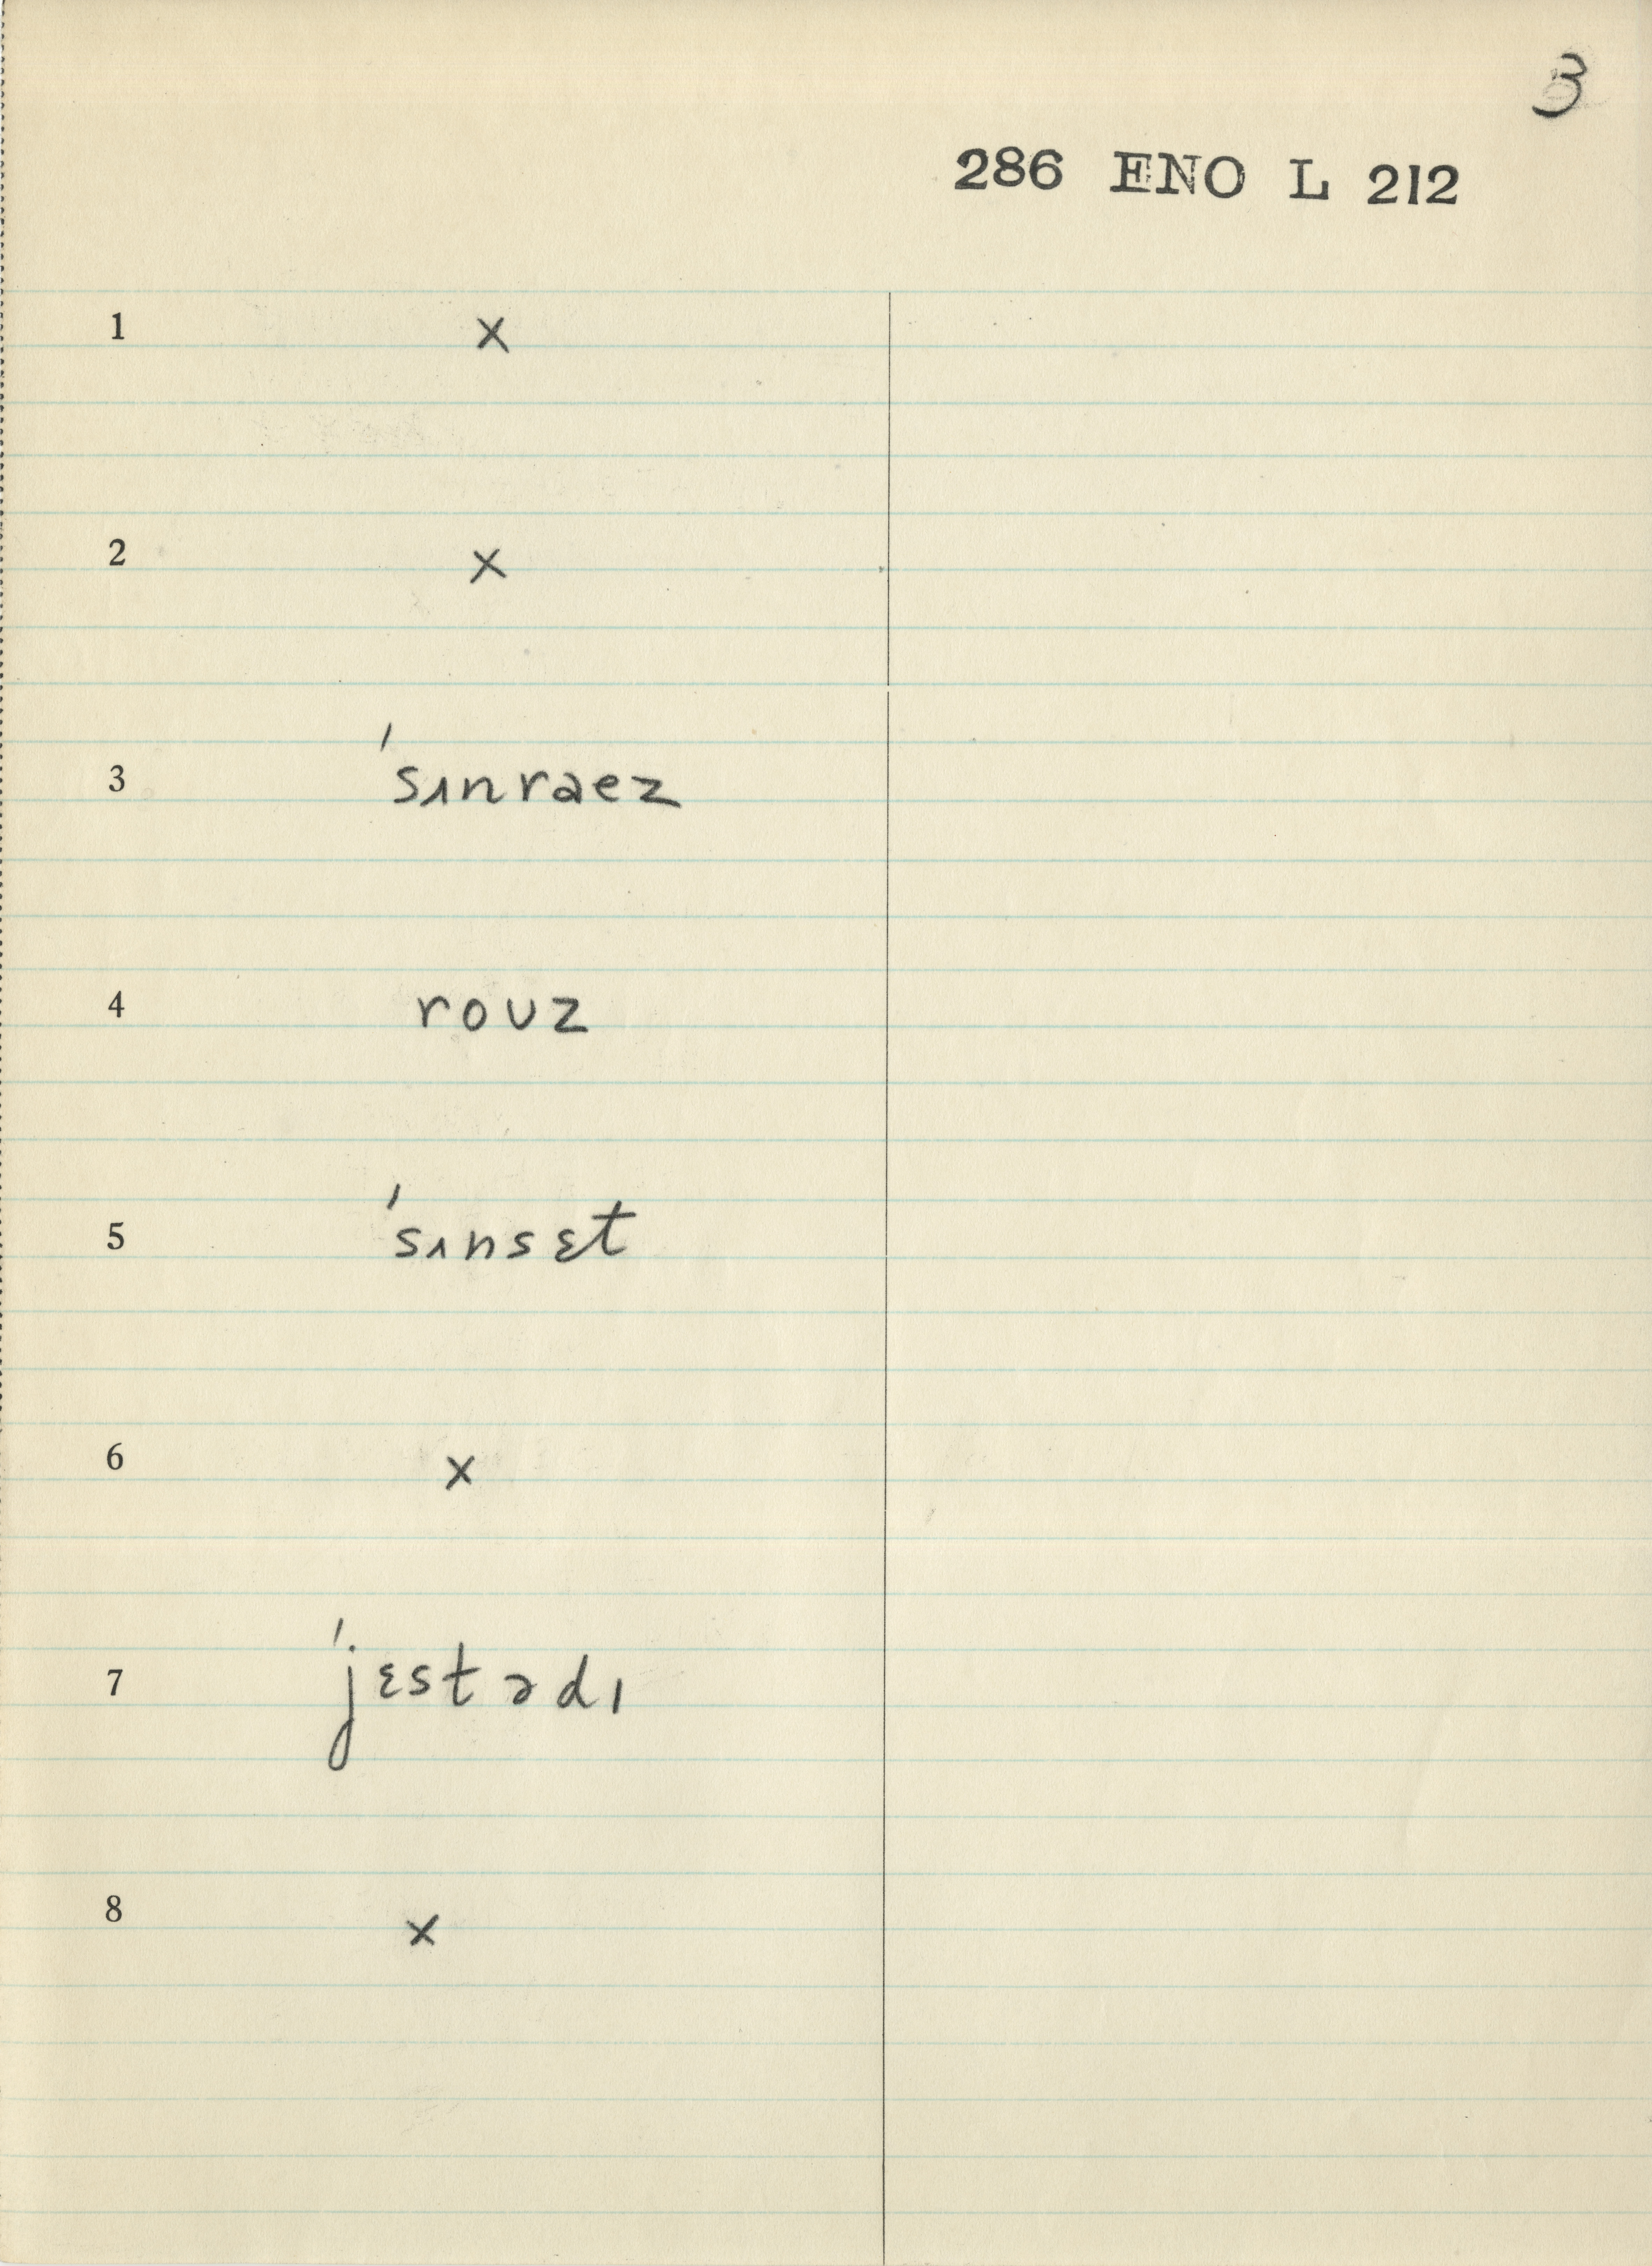 3
286 ENO L 212
1 x
2 x
3 ˈsɪnraez
4 rouz
5 ˈsɪnsɛt
6 x
7 ˈjɛstədɪ
8 x